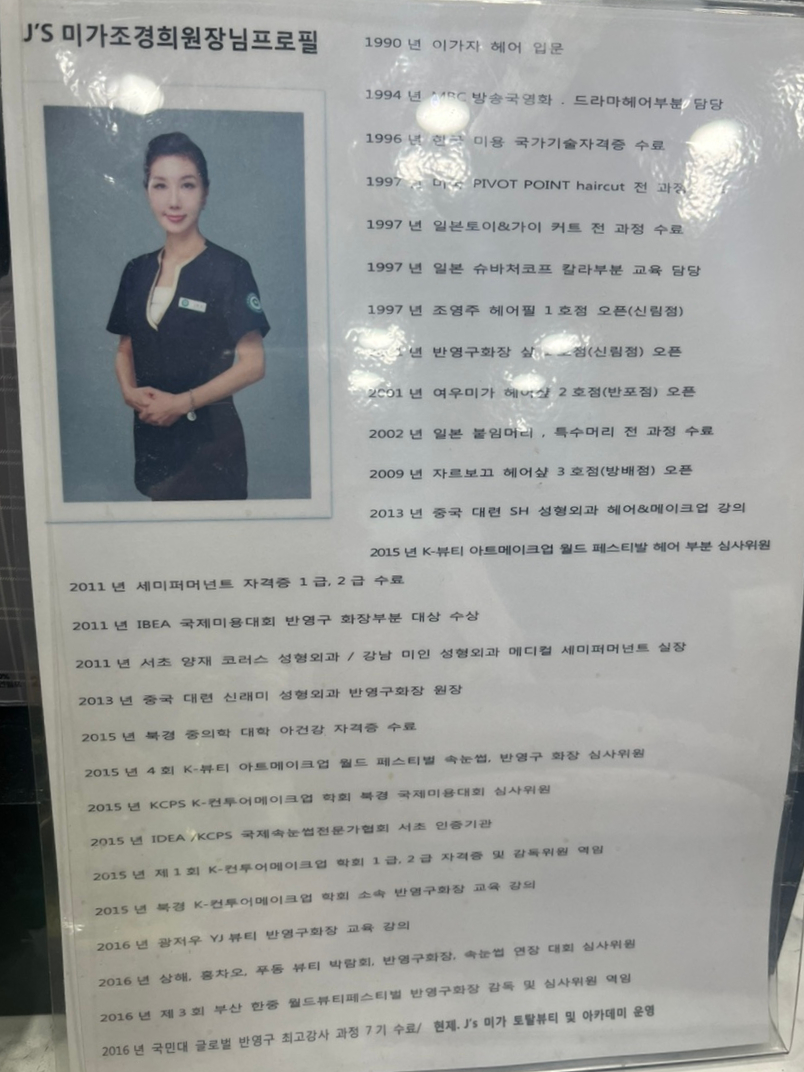 J'S 미가조경희원장님프로필
1990 년 이가자 헤어 입문
1994 년 MBC 방송국영화 . 드라마헤어부분 담당
1996 년 한국 미용 국가기술자격증 수료
1997 년 미국 PIVOT POINT haircut 전 과정
1997 년 일본토이&가이 커트 전 과정 수료
1997 년 일본 슈바처코프 칼라부분 교육 담당
1997 년 조영주 헤어필 1 호점 오픈(신림점)
년 반영구화장 샵 호점(신림점) 오픈
2001 년 여우미가 헤어샾 2 호점(반포점) 오픈
2002 년 일본 붙임머리 , 특수머리 전 과정 수료
2009 년 자르보끄 헤어샾 3 호점(방배점) 오픈
2013 년 중국 대련 SH 성형외과 헤어&메이크업 강의
2015 년 K-뷰티 아트메이크업 월드 페스티발 헤어 부분 심사위원
2011 년 세미퍼머넌트 자격증 1 급, 2 급 수료
2011 년 IBEA 국제미용대회 반영구 화장부분 대상 수상
2011 년 서초 양재 코러스 성형외과 / 강남 미인 성형외과 메디컬 세미퍼머넌트 실장
2013 년 중국 대련 신래미 성형외과 반영구화장 원장
2015 년 북경 중의학 대학 아건강 자격증 수료
2015 년 4 회 K-뷰티 아트메이크업 월드 페스티벌 속눈썹, 반영구 화장 심사위원
2015 년 KCPS K-컨투어메이크업 학회 북경 국제미용대회 심사위원
2015 년 IDEA /KCPS 국제속눈썹전문가협회 서초 인증기관
2015 년 제 1 회 K-컨투어메이크업 학회 1 급, 2 급 자격증 및 감독위원 역임
2015 년 북경 K-컨투어메이크업 학회 소속 반영구화장 교육 강의
2016 년 광저우 YJ 뷰티 반영구화장 교육 강의
2016 년 상해, 홍차오, 푸동 뷰티 박람회, 반영구화장, 속눈썹 연장 대회 심사위원
2016 년 제 3 회 부산 한중 월드뷰티페스티벌 반영구화장 감독 및 심사위원 역임
2016 년 국민대 글로벌 반영구 최고강사 과정 7 기 수료/ 현제. J's 미가 토탈뷰티 및 아카데미 운영